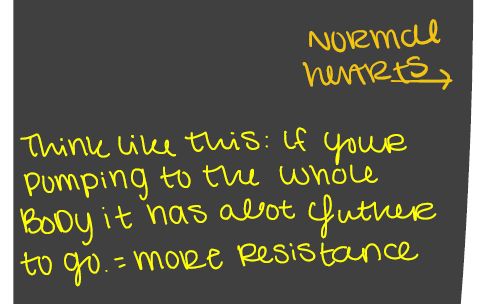 NORMAL
HEARTS
Think like this: If your
pumping to the whole
Body it has alot futher
to go. = more resistance